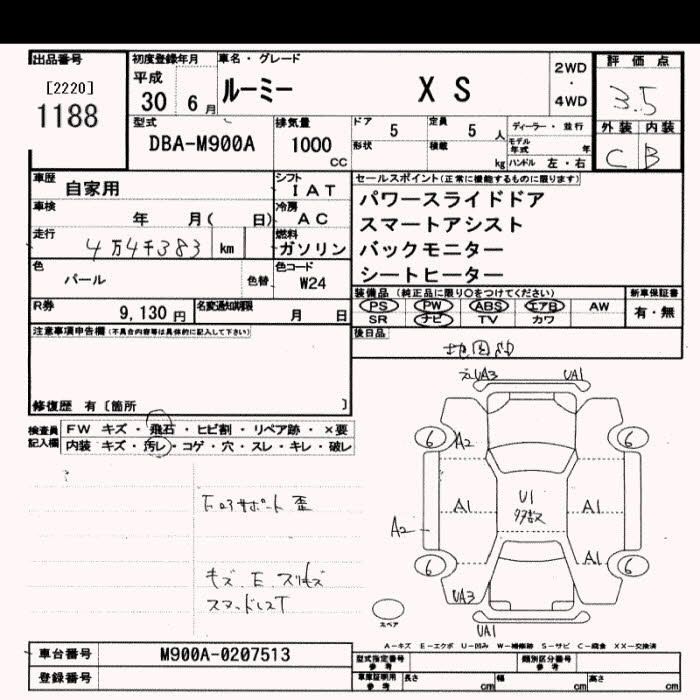 出品番号
[2220]
1188
初度登録年月
平成
30 6月
車名・グレード
ルーミー X S
2WD
・
4WD
評価点
3.5
外装 内装
C B
型式
DBA-M900A
排気量
1000
CC
ドア
5
定員
5 人
形状
積載
kg
ディーラー・並行
モデル年式 年
ハンドル 左・右
車歴
自家用
シフト
IAT
車検
年 月( 日)
冷房
AC
走行
4万4千383 km
燃料
ガソリン
色
パール
色替
色コード
W24
R券
9,130円
名変通知期限
月 日
セールスポイント(正常に機能するものに限ります)
パワースライドドア
スマートアシスト
バックモニター
シートヒーター
装備品(純正品に限り○をつけてください)
新車保証書
PS PW ABS エアB AW
有・無
SR ナビ TV カワ
後日品
注意事項申告欄(不具合内容等は具体的に記入して下さい)
修復歴 有〔箇所 〕
検査員
記入欄
FW キズ・飛石・ヒビ割・リペア跡・×要
内装 キズ・汚レ・コゲ・穴・スレ・キレ・破レ
UA3 UA1
6 A2 6
A1 U1 A1
A2
A1
6 6
UA3
UA1
スペア
A-キズ E-エクボ U-凹み W-補修跡 S-サビ C-腐食 XX-交換済
車台番号
M900A-0207513
登録番号
型式指定番号
参考
類別区分番号
参考
車庫証明用
参考
長さ cm 幅 cm 高さ cm